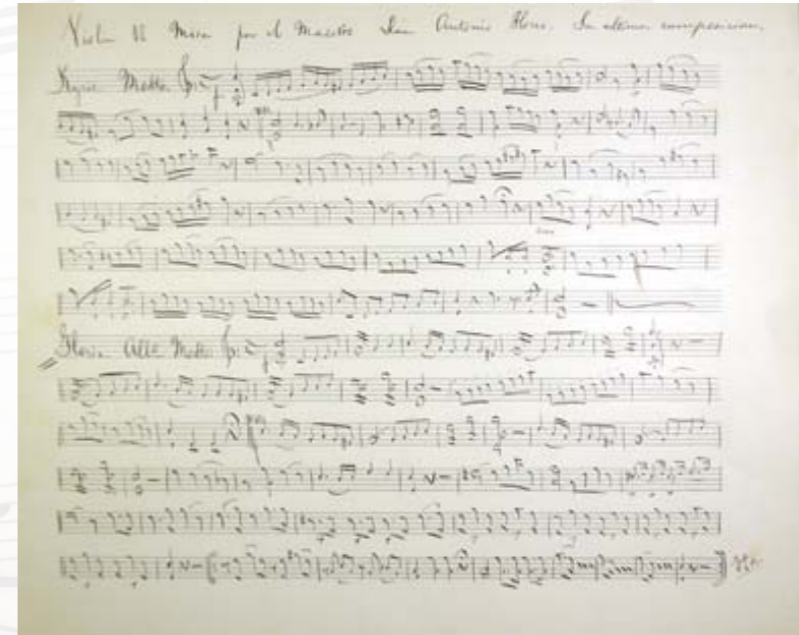 Violin II Misa por el Maestro Luis Antonio Flores. Su ultima composicion.
Kyrie Motto
Gloria Allo Motto